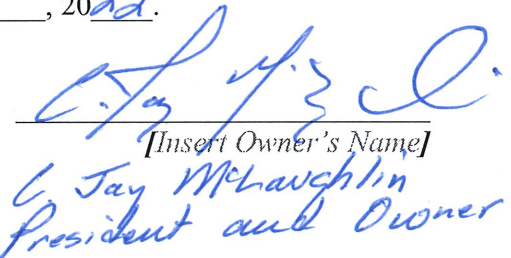 , 2022.
C. Jay McL
[Insert Owner's Name]
C. Jay McLaughlin
President and Owner